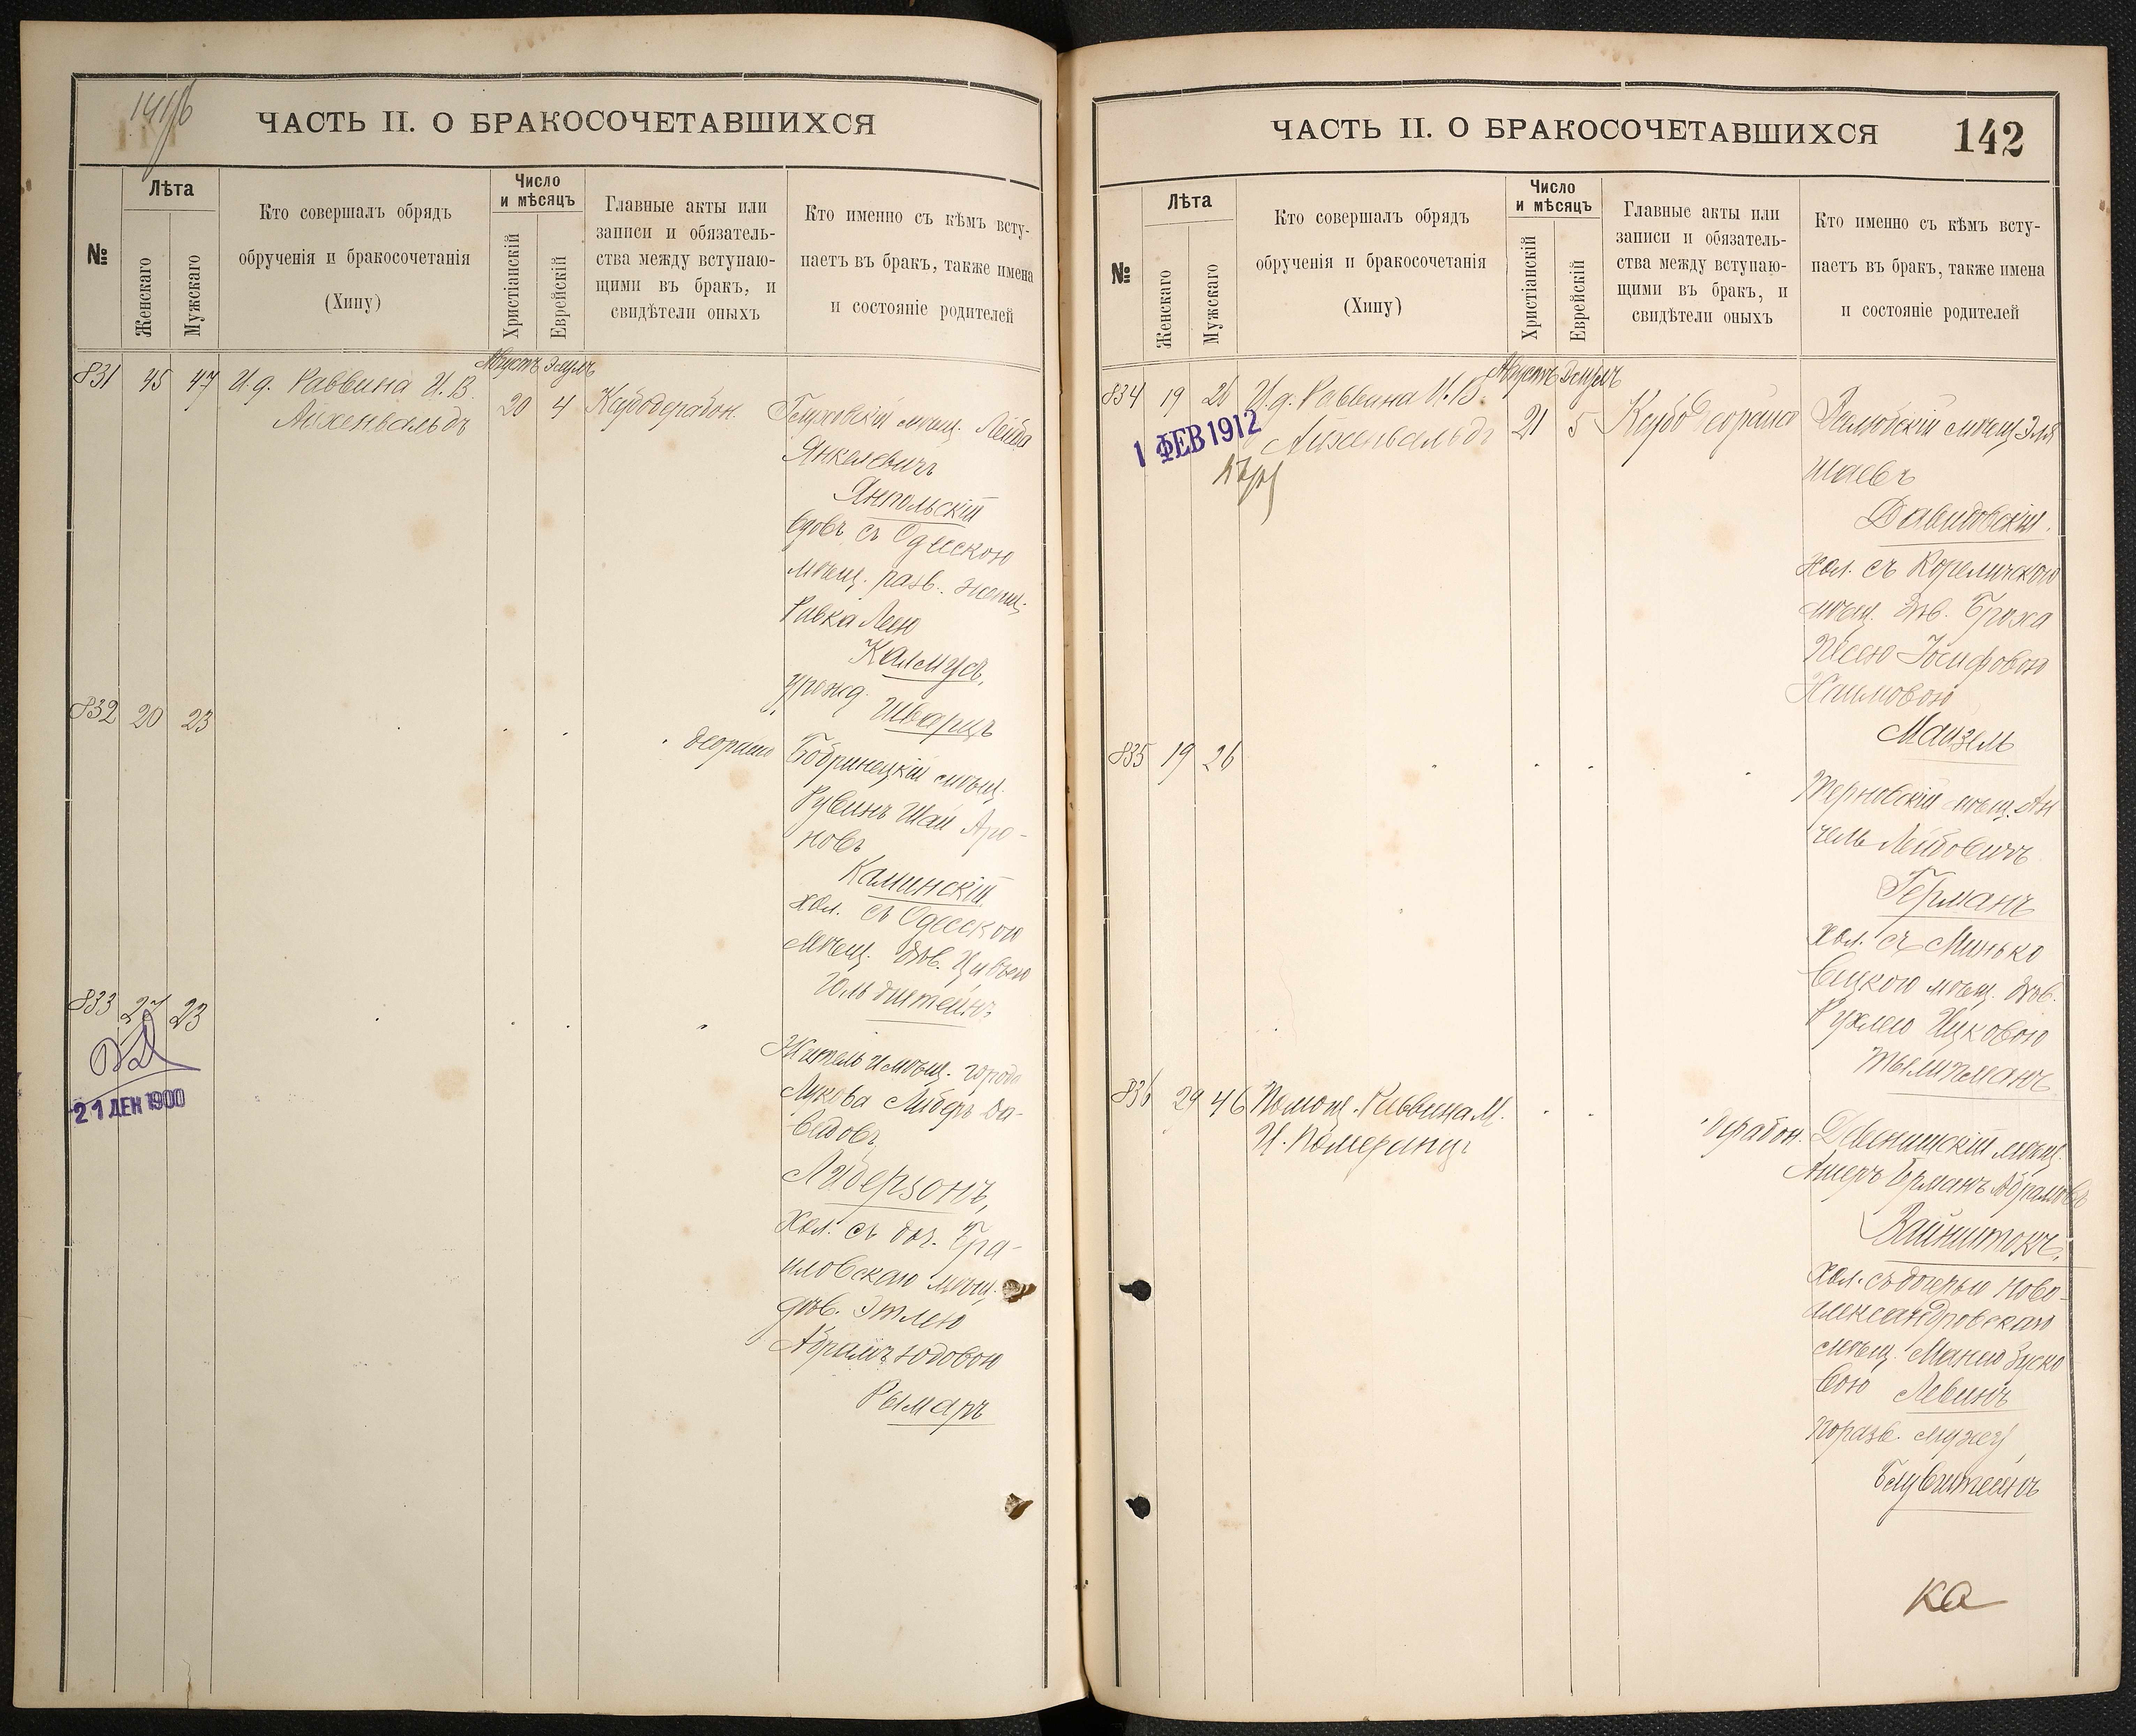 141/б
ЧАСТЬ II. О БРАКОСОЧЕТАВШИХСЯ
№
Лѣта
Женскаго
Мужскаго
Кто совершалъ обрядъ
обрученія и бракосочетанія
(Хипу)
Число
и мѣсяцъ
Христіанскій
Еврейскій
Главные акты или
записи и обязатель-
ства между вступаю-
щими въ бракъ, и
свидѣтели оныхъ
Кто именно съ кѣмъ всту-
паетъ въ бракъ, также имена
и состояніе родителей
Августъ Элулъ
831 45 47 И.д. Раввина И. В.
Айхенвальдъ
20 4
мѣщ. Лейба
Янкелевичъ
Янпольскій
вдовъ съ Одесскою
мѣщ. разв. женщ.
Ривка Леею
Калмусъ,
урожд. Шварцъ
832 20 23
Бобринецкій мѣщ.
Рувинъ Шаи Аро-
новъ
Каминскій
хол. съ Одесскою
мѣщ. дѣв. Цивьею
Гольдштейнъ
833 27 23
21 ДЕК 1900
Житель и мѣщ. города
Лукова Либеръ Да-
видовъ
Лидерзонъ,
Хол. съ доч. Бра-
иловскаго мѣщ.
дѣв. Этлею
Абрамъ Юдовою
Рымаръ
ЧАСТЬ II. О БРАКОСОЧЕТАВШИХСЯ
142
№
Лѣта
Женскаго
Мужскаго
Кто совершалъ обрядъ
обрученія и бракосочетанія
(Хипу)
Число
и мѣсяцъ
Христіанскій
Еврейскій
Главные акты или
записи и обязатель-
ства между вступаю-
щими въ бракъ, и
свидѣтели оныхъ
Кто именно съ кѣмъ всту-
паетъ въ бракъ, также имена
и состояніе родителей
Августъ Элулъ
834 19 26 И.д. Раввина И. В.
Айхенвальдъ
21 5
1 ФЕВ 1912
мѣщ Эля
Шаевъ
Давидовскій.
хол. съ Кореличскою
мѣщ. дѣв. Броха
Песею Іосифовою
Хаимовою
Маизель
835 19 26
Терновскій мѣщ. Ан
чель Лейбовичъ
Германъ
хол. съ Минько
вецкою мѣщ. дѣв.
Рухлею Ицковою
Тыличманъ
836 29 46 Помощ. Раввина М.
И. Померанцъ
Девенишскій мѣщ.
Ашеръ Берманъ Абрамовъ
Вайнштокъ,
хол. съ дочерью Ново-
александровскаго
мѣщ. Манею Зуско
вою Левинъ
по разв. мужу
Блувштейнъ
ка